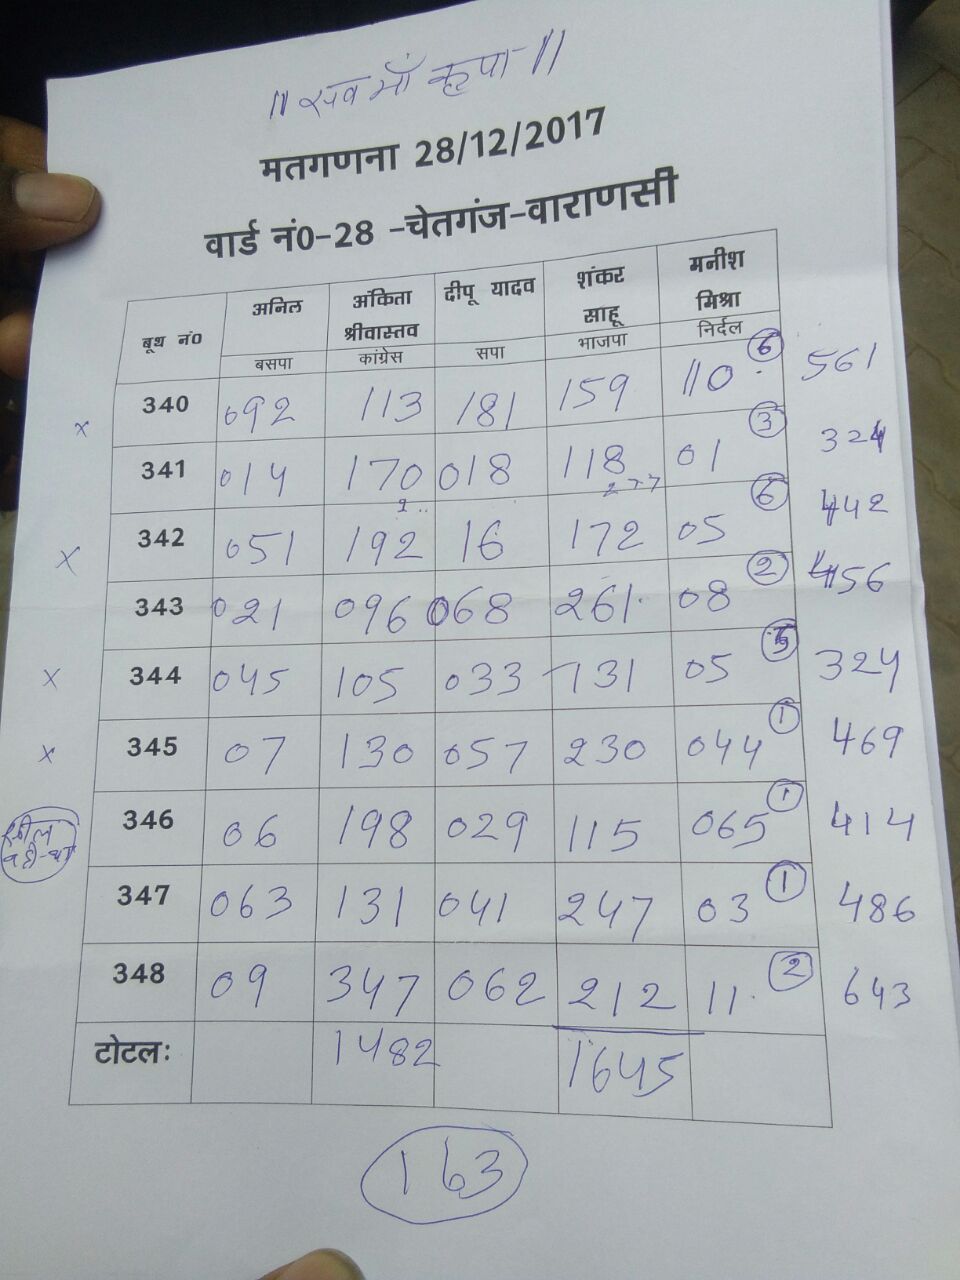 ॥ सब माँ कृपा ॥
मतगणना 28/12/2017
वार्ड नं0-28 -चेतगंज-वाराणसी
बूथ नं0 अनिल अंकिता श्रीवास्तव दीपू यादव शंकर साहू मनीश मिश्रा
बसपा कांग्रेस सपा भाजपा निर्दल
340 092 113 181 159 110 6 561
x
341 014 170 018 118 01 3 324
277
342 051 192 16 172 05 6 442
x
343 021 096 068 261 08 2 456
x 344 045 105 033 131 05 5 324
x 345 07 130 057 230 044 1 469
346 06 198 029 115 065 1 414
347 063 131 041 247 03 1 486
348 09 347 062 212 11 2 643
टोटलः 1482 1645
163